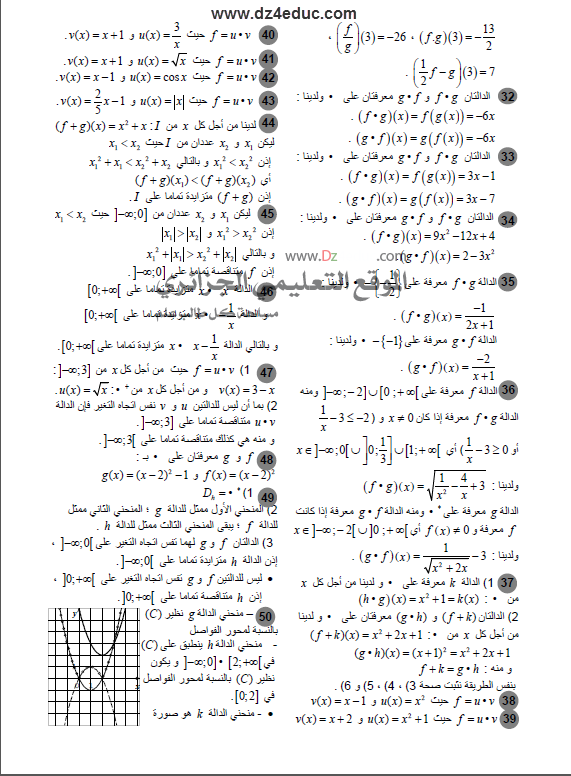 www.dz4educ.com
، (f/g)(3) = −26 ، (f.g)(3) = −13/2
. (1/2 f − g)(3) = 7
32 الدالتان f • g و g • f معرفتان على • ولدينا :
. (f • g)(x) = f(g(x)) = −6x
. (g • f)(x) = g(f(x)) = −6x
33 الدالتان f • g و g • f معرفتان على • ولدينا :
. (f • g)(x) = f(g(x)) = 3x − 1
. (g • f)(x) = g(f(x)) = 3x − 7
34 الدالتان f • g و g • f معرفتان على • ولدينا :
. (f • g)(x) = 9x² − 12x + 4
. (g • f)(x) = 2 − 3x²
35 الدالة f • g معرفة على • −{−1/2} • ولدينا :
. (f • g)(x) = −1/(2x+1)
الدالة g • f معرفة على {−1}− • ولدينا :
. (g • f)(x) = −2/(x+1)
36 الدالة f معرفة على ]−∞;−2]∪[0;+∞[ ومنه
الدالة f • g معرفة إذا كان x ≠ 0 و ( 1/x − 3 ≤ −2
أو 1/x − 3 ≥ 0 ) أي x ∈ ]−∞;0[ ∪ ]0;1/3] ∪ [1;+∞[
ولدينا : (f • g)(x) = √(1/x² − 4/x + 3)
الدالة g معرفة على •* ومنه الدالة g • f معرفة إذا كانت
f معرفة و f(x) ≠ 0 أي x ∈ ]−∞;−2[ ∪ ]0;+∞[
ولدينا : . (g • f)(x) = 1/√(x²+2x) − 3
37 1) الدالة k معرفة على • و لدينا من أجل كل x
من • : (h • g)(x) = x² + 1 = k(x)
2) الدالتان (f + k) و (g • h) معرفتان على • و لدينا
من أجل كل x من • : (f + k)(x) = x² + 2x + 1
(g • h)(x) = (x+1)² = x² + 2x + 1
و منه : f + k = g • h
بنفس الطريقة نثبت صحة 3) ، 4) ، 5) و 6) .
38 f = u • v حيث u(x) = x² و v(x) = x − 1
39 f = u • v حيث u(x) = x² + 1 و v(x) = x + 2
40 f = u • v حيث u(x) = 3/x و v(x) = x + 1 .
41 f = u • v حيث u(x) = √x و v(x) = x + 1 .
42 f = u • v حيث u(x) = cos x و v(x) = x − 1 .
43 f = u • v حيث u(x) = |x| و v(x) = 2/5 x − 1 .
44 لدينا من أجل كل x من I : (f + g)(x) = x² + x
ليكن x₁ و x₂ عددان من I حيث x₁ < x₂
إذن x₁² < x₂² و بالتالي x₁² + x₁ < x₂² + x₂
أي (f + g)(x₁) < (f + g)(x₂)
إذن (f + g) متزايدة تماما على I .
45 ليكن x₁ و x₂ عددان من ]−∞;0] حيث x₁ < x₂
إذن x₁² > x₂² و |x₁| > |x₂|
و بالتالي x₁² + |x₁| > x₂² + |x₂|
إذن f متناقصة تماما على ]−∞;0] .
46 الدالة x • x متزايدة تماما على ]0;+∞[
و الدالة x • −1/x متزايدة تماما على ]0;+∞[
و بالتالي الدالة x • x − 1/x متزايدة تماما على ]0;+∞[ .
47 1) f = u • v حيث من أجل كل x من ]−∞;3] :
v(x) = 3 − x و من أجل كل x من •⁺ : u(x) = √x .
2) بما أن ليس للدالتين u و v نفس اتجاه التغير فإن الدالة
u • v متناقصة تماما على ]−∞;3] .
و منه هي كذلك متناقصة تماما على ]−∞;3] .
48 f و g معرفتان على • بـ :
f(x) = (x−2)² و g(x) = (x−2)² − 1
49 1) D_h = •*
2) المنحني الأول ممثل للدالة g ؛ المنحني الثاني ممثل
للدالة f ؛ يبقى المنحني الثالث ممثل للدالة h .
3) الدالتان f و g لهما نفس اتجاه التغير على ]−∞;0[ ،
إذن الدالة h متزايدة تماما على ]−∞;0[ .
• ليس للدالتين f و g نفس اتجاه التغير على ]0;+∞[ ،
إذن h متناقصة تماما على ]0;+∞[ .
50 – منحني الدالة g نظير (C)
بالنسبة لمحور الفواصل
- منحني الدالة h ينطبق على (C)
في ]−∞;0] • [2;+∞[ و يكون
نظير (C) بالنسبة لمحور الفواصل
في [0;2] .
• - منحني الدالة k هو صورة
y
www.Dz
.com
الموقع التعليمي الجزائري